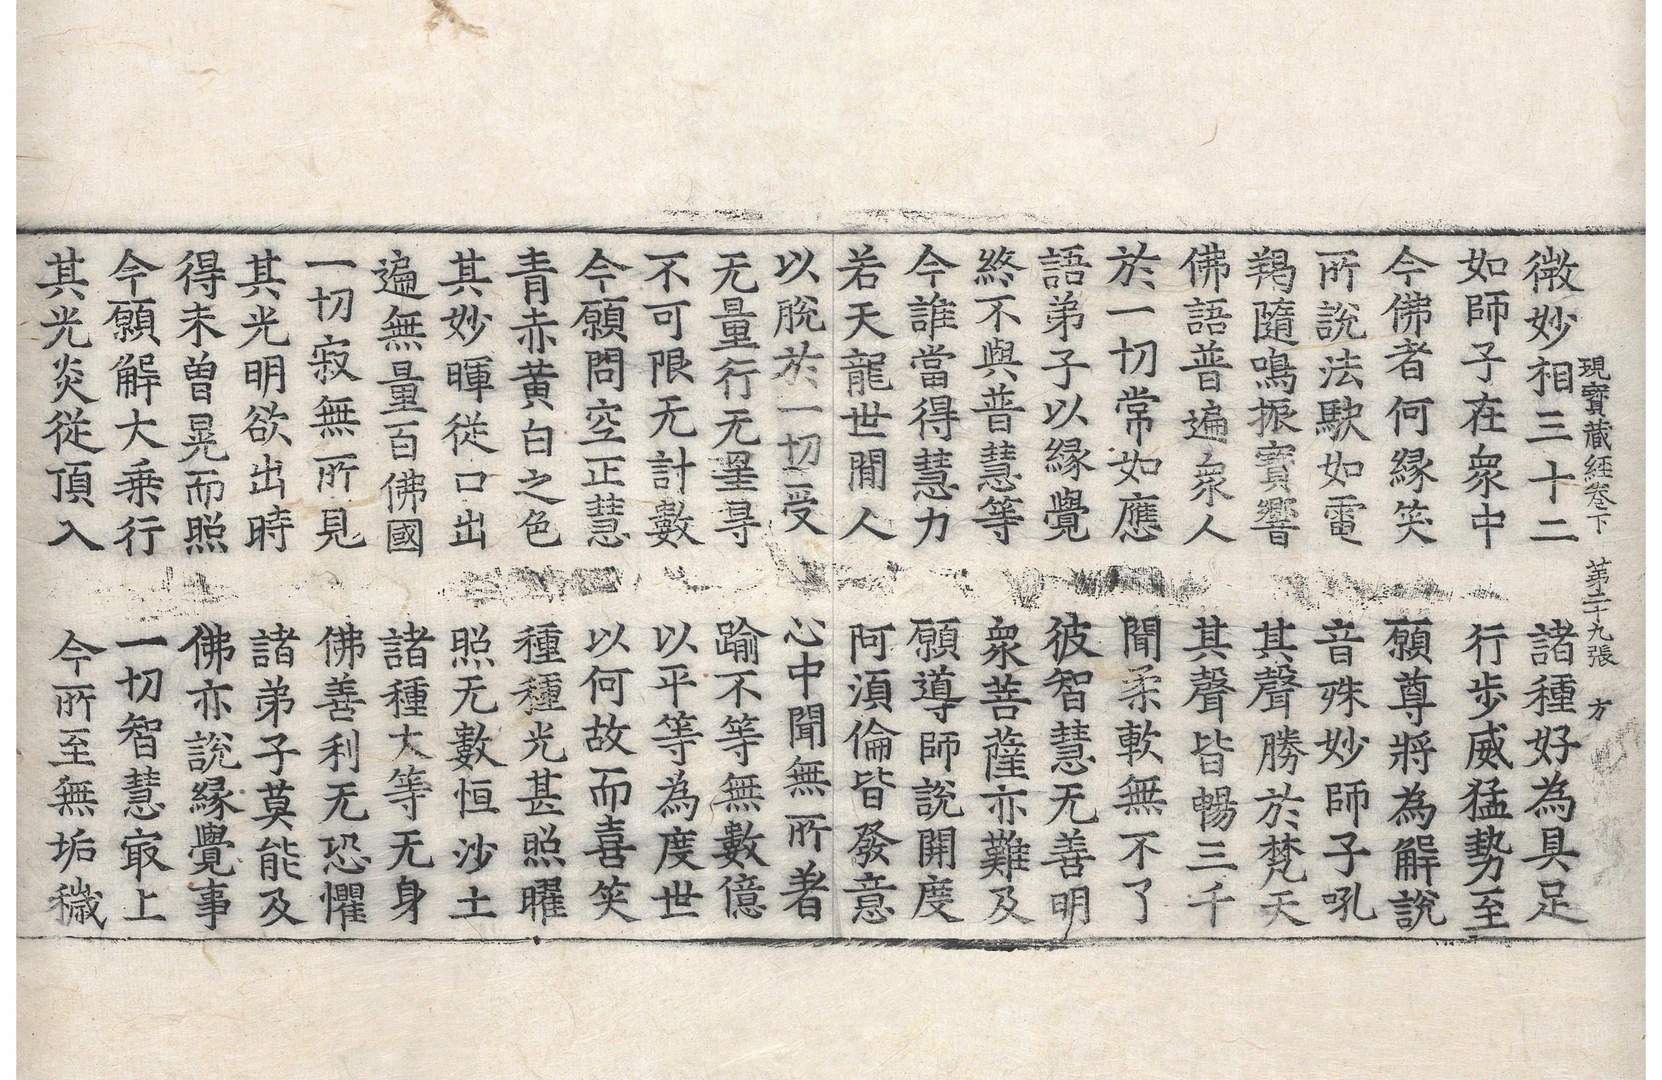 現寶藏經卷下 第二十九張 方
微妙相三十二 諸種好為具足
如師子在衆中 行步威猛勢至
今佛者何緣笑 願尊將為解說
所說法駛如雷 音殊妙師子吼
羯隨鳴振寶響 其聲勝於梵天
佛語普遍衆人 其聲皆暢三千
於一切常如應 聞柔軟無不了
語弟子以緣覺 彼智慧无善明
終不與普慧等 衆菩薩亦難及
今誰當得慧力 願導師說開度
若天龍世間人 阿須倫皆發意
以脫於一切受 心中聞無所著
无量行无罣㝵 踰不等無數億
不可限无計數 以平等為度世
今願問空正慧 以何故而喜笑
青赤黃白之色 種種光甚照曜
其妙暉從口出 照无數恒沙土
遍無量百佛國 諸種大等无身
一切寂無所見 佛善利无恐懼
其光明欲出時 諸弟子莫能及
得未曾晃而照 佛亦說緣覺事
今願解大乘行 一切智慧冣上
其光炎從頂入 今所至無垢穢